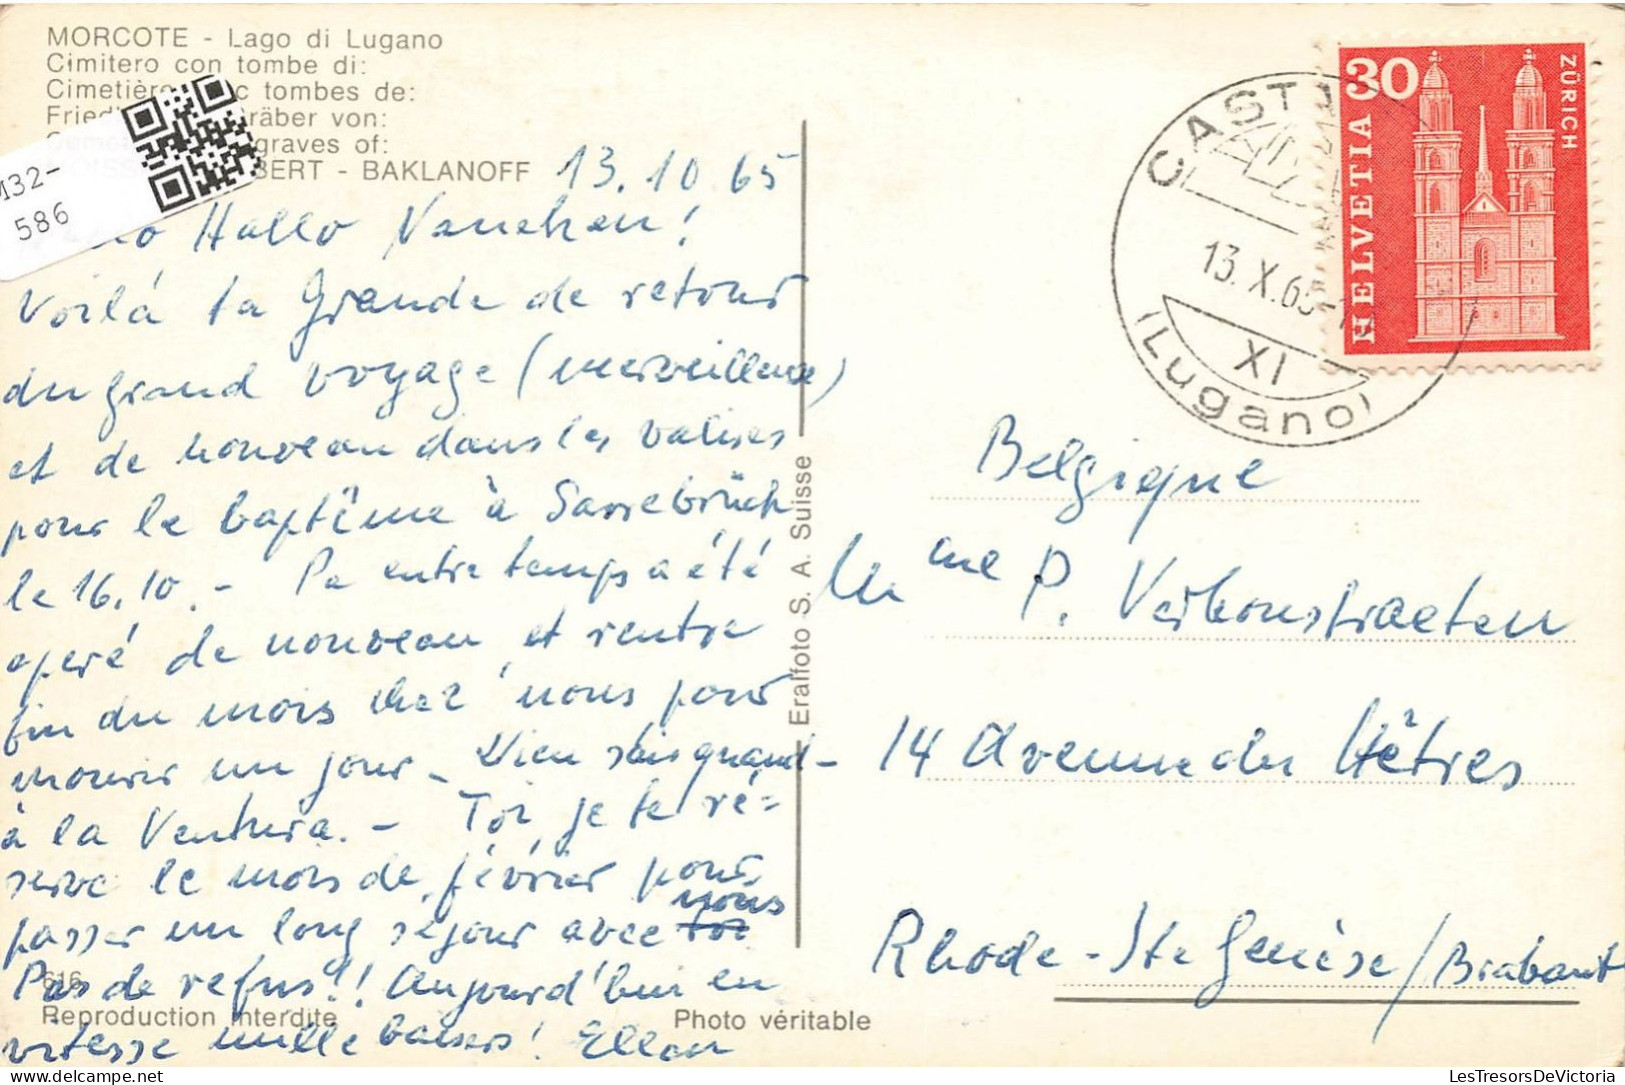 MORCOTE - Lago di Lugano
Cimitero con tombe di:
Cimetière tombes de:
räber von:
graves of:
BERT - BAKLANOFF
M32-
586
13.10.65
Hallo
Voilà ta Grande de retour
du grand voyage (merveilleux)
et de nouveau dans les valises
pour le baptême à Sarrebrück
le 16.10. - Pa entre temps a été
operé de nouveau et rentre
fin du mois chez nous pour
mourir un jour - Dieu sais quand -
à la Ventura. - Toi, je te ré=
serve le mois de février pour
passer un long séjour avec nous
Pas de refus!! Aujourd'hui en
vitesse mille baisers! Ellen
616
Reproduction interdite
Photo véritable
Eralfoto S. A. Suisse
CAST
13.X.65
XI
(Lugano)
30
HELVETIA
ZÜRICH
Belgique
Mme P. Verhonstraeten
14 Avenue des Hêtres
Rhode-Ste Genèse/Brabant
LesTresorsDeVictoria